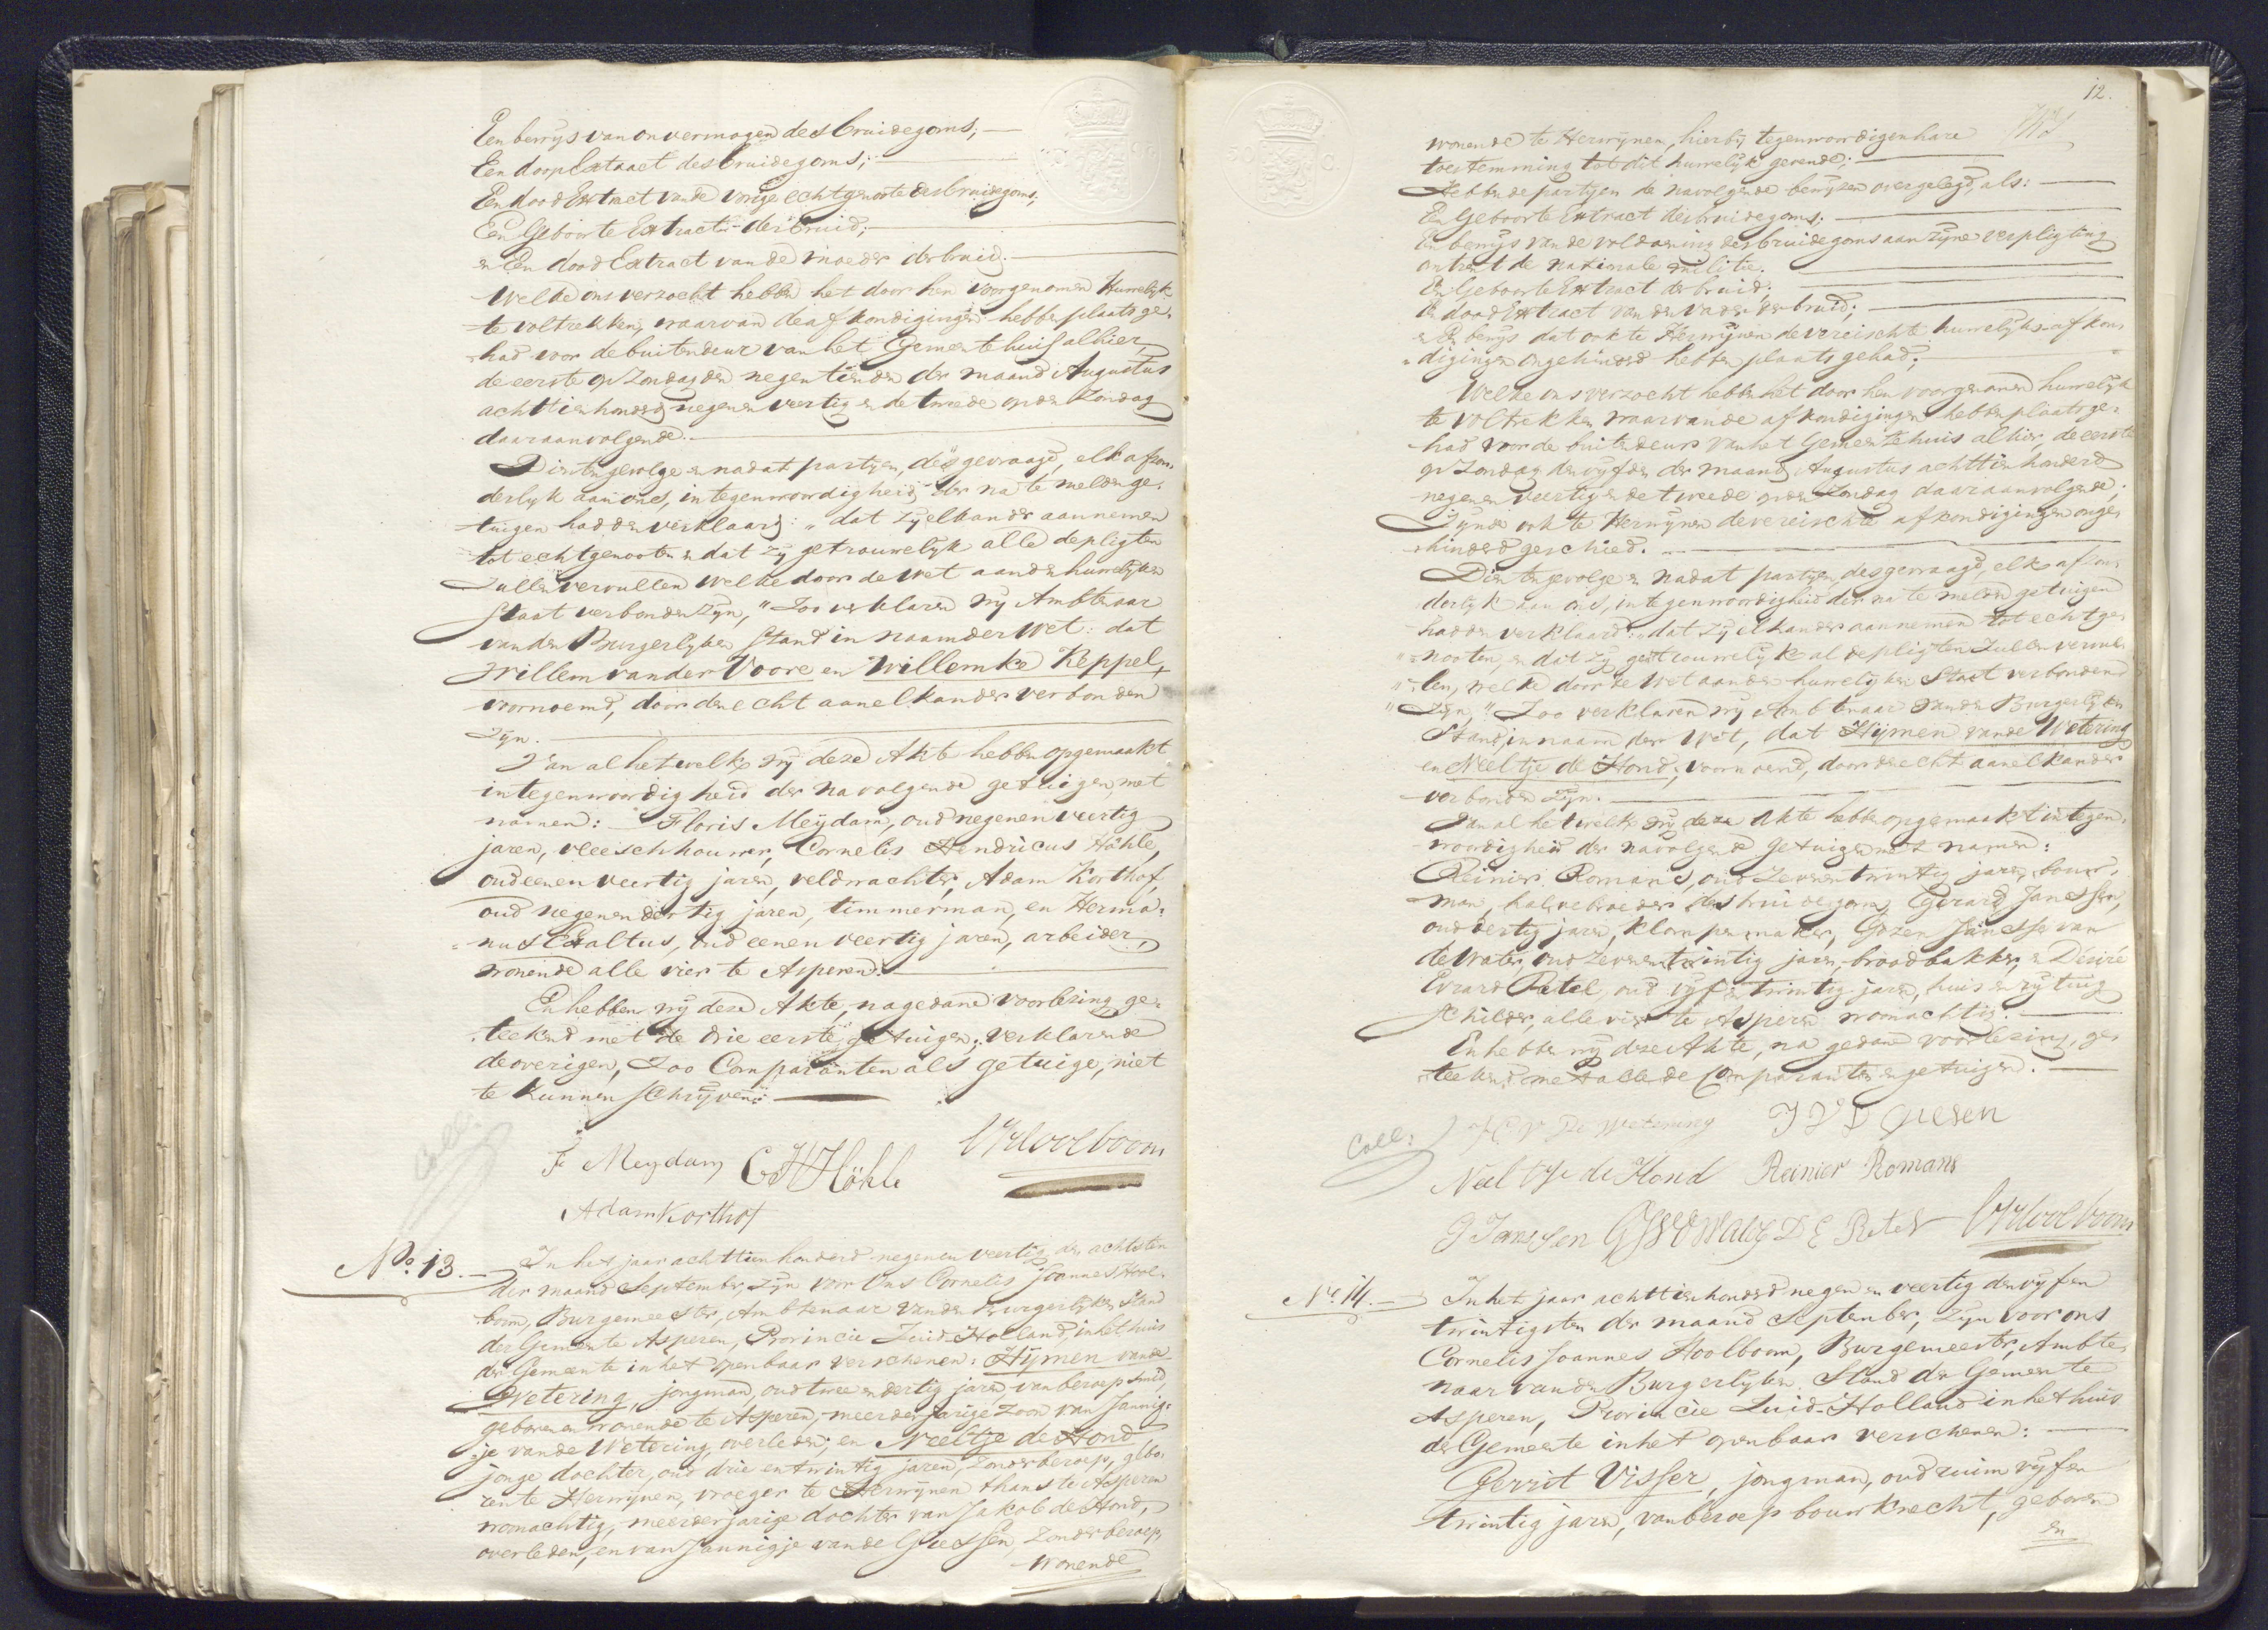 Een bewijs van onvermogen des bruidegoms; —
Een doop Extract des bruidegoms; —
Een dood Extract van de vorige echtgenoote des bruidegoms;
Een Geboorte Extract der bruid; —
en Een dood Extract van de moeder der bruid. —
Welke ons verzocht hebben het door hen voorgenomen Huwelijk
te voltrekken, waarvan de afkondigingen hebben plaats ge-
had voor de buitendeur van het Gemeentehuis alhier,
de eerste op Zondag den negentienden der maand Augustus
achttienhonderd negen en veertig en de tweede op den Zondag
daaraanvolgende. —
Dien ten gevolge en nadat partijen, des gevraagd, elk afzon-
derlijk aan ons, in tegenwoordigheid der na te melden ge-
tuigen hadden verklaard: „dat zij elkander aannemen
tot echtgenooten en dat zij getrouwelijk alle de pligten
zullen vervullen welke door de wet aan den huwelijken
staat verbonden zijn," Zoo verklaren wij Ambtenaar
van den Burgerlijken Stand in naam der Wet: dat
Willem van der Voore en Willemke Keppel,
voornoemd, door den echt aan elkander verbonden
zijn. —
Van al hetwelk wij deze Akte hebben opgemaakt
in tegenwoordigheid der navolgende getuigen, met
namen: Floris Meydam, oud negen en veertig
jaren, vleeschhouwer, Cornelis Hendricus Höhle,
oud een en veertig jaren, veldwachter, Adam Korthof,
oud negen en dertig jaren, timmerman, en Herma-
nus Exaltus, oud een en veertig jaren, arbeider,
wonende alle vier te Asperen. —
En hebben wij deze Akte, na gedane voorlezing ge-
teekend met de drie eerste getuigen; verklarende
de overigen, Zoo Comparanten als getuige, niet
te kunnen schrijven. —
Coll:
F Meydam C H Höhle CJHoolboom
Adam Korthof
No. 13. — In het jaar achttienhonderd negen en veertig den achtsten
der maand September, zijn voor Ons Cornelis Joannes Hool-
boom, Burgemeester, Ambtenaar van den Burgerlijken Stand
der Gemeente Asperen, Provincie Zuid-Holland, in het huis
der Gemeente in het openbaar verschenen: Hijmen van de
Wetering, jongman, oud twee en dertig jaren, van beroep smid,
geboren en wonende te Asperen, meerderjarige zoon van Jannig-
je van de Wetering, overleden; en Neeltje de Hond
jonge dochter, oud drie en twintig jaren, zonder beroep, gebo-
ren te Herwijnen, vroeger te Herwijnen thans te Asperen
woonachtig, meerderjarige dochter van Jakob de Hond,
overleden, en van Jannigje van de Giessen, zonder beroep,
wonende
12.
wonende te Herwijnen, hierbij tegenwoordig en hare
toestemming tot dit huwelijk gevende; —
Hebbende partijen de navolgende bewijzen overgelegd, als: —
Een Geboorte Extract des bruidegoms; —
Een bewijs van de voldoening des bruidegoms aan zijne verpligting
omtrent de nationale militie. —
Een Geboorte Extract der bruid; —
Een dood Extract van den vader der bruid; —
en Een bewijs dat ook te Herwijnen de vereischte huwelijks-afkon-
digingen ongehinderd hebben plaats gehad; —
Welke ons verzocht hebben het door hen voorgenomen huwelijk
te voltrekken waarvan de afkondigingen hebben plaats ge-
had voor de buitendeur van het Gemeentehuis alhier, de eerste
op Zondag den vijfden der maand Augustus achttienhonderd
negen en veertig en de tweede op den Zondag daaraanvolgende;
Zijnde ook te Herwijnen de vereischte afkondigingen onge-
hinderd geschied. —
Dien ten gevolge en nadat partijen, des gevraagd, elk afzon-
derlijk aan ons, in tegenwoordigheid der na te melden getuigen
hadden verklaard: „dat zij elkander aannemen tot echtge-
„nooten, en dat zij getrouwelijk al de pligten zullen vervul-
„len, welke door de wet aan den huwelijken Staat verbonden
„zijn," Zoo verklaren wij Ambtenaar van den Burgerlijken
Stand, in naam der Wet, dat Hijmen van de Wetering
en Neeltje de Hond, voornoemd, door den echt aan elkander
verbonden zijn. —
Van al hetwelk wij deze Akte hebben opgemaakt in tegen-
woordigheid der navolgende getuigen met namen:
Reinier Romans, oud zeven en twintig jaren, bouw-
man, halve broeder des bruidegoms, Gerard Janssen,
oud dertig jaren, klompenmaker, Gozen Jansse van
de Water, oud zeven en twintig jaren, broodbakker, en Désiré
Evrard Patel, oud vijf en twintig jaren, huis en rijtuig
schilder, alle vier te Asperen woonachtig. —
En hebben wij deze Akte, na gedane voorlezing, ge-
teekend met alle de Comparanten en getuigen. —
Coll: H V De Wetering J V D Giesen
Neeltje de Hond Reinier Romans
G Janssen D E Patel CJHoolboom
No. 14. — In het jaar achttienhonderd negen en veertig den vijf en
twintigsten der maand September, zijn voor ons
Cornelis Joannes Hoolboom, Burgemeester, Ambte-
naar van den Burgerlijken Stand der Gemeente
Asperen, Provincie Zuid-Holland in het huis
der Gemeente in het openbaar verschenen: —
Gerrit Visser, jongman, oud ruim vijf en
twintig jaren, van beroep bouwknecht, geboren
en